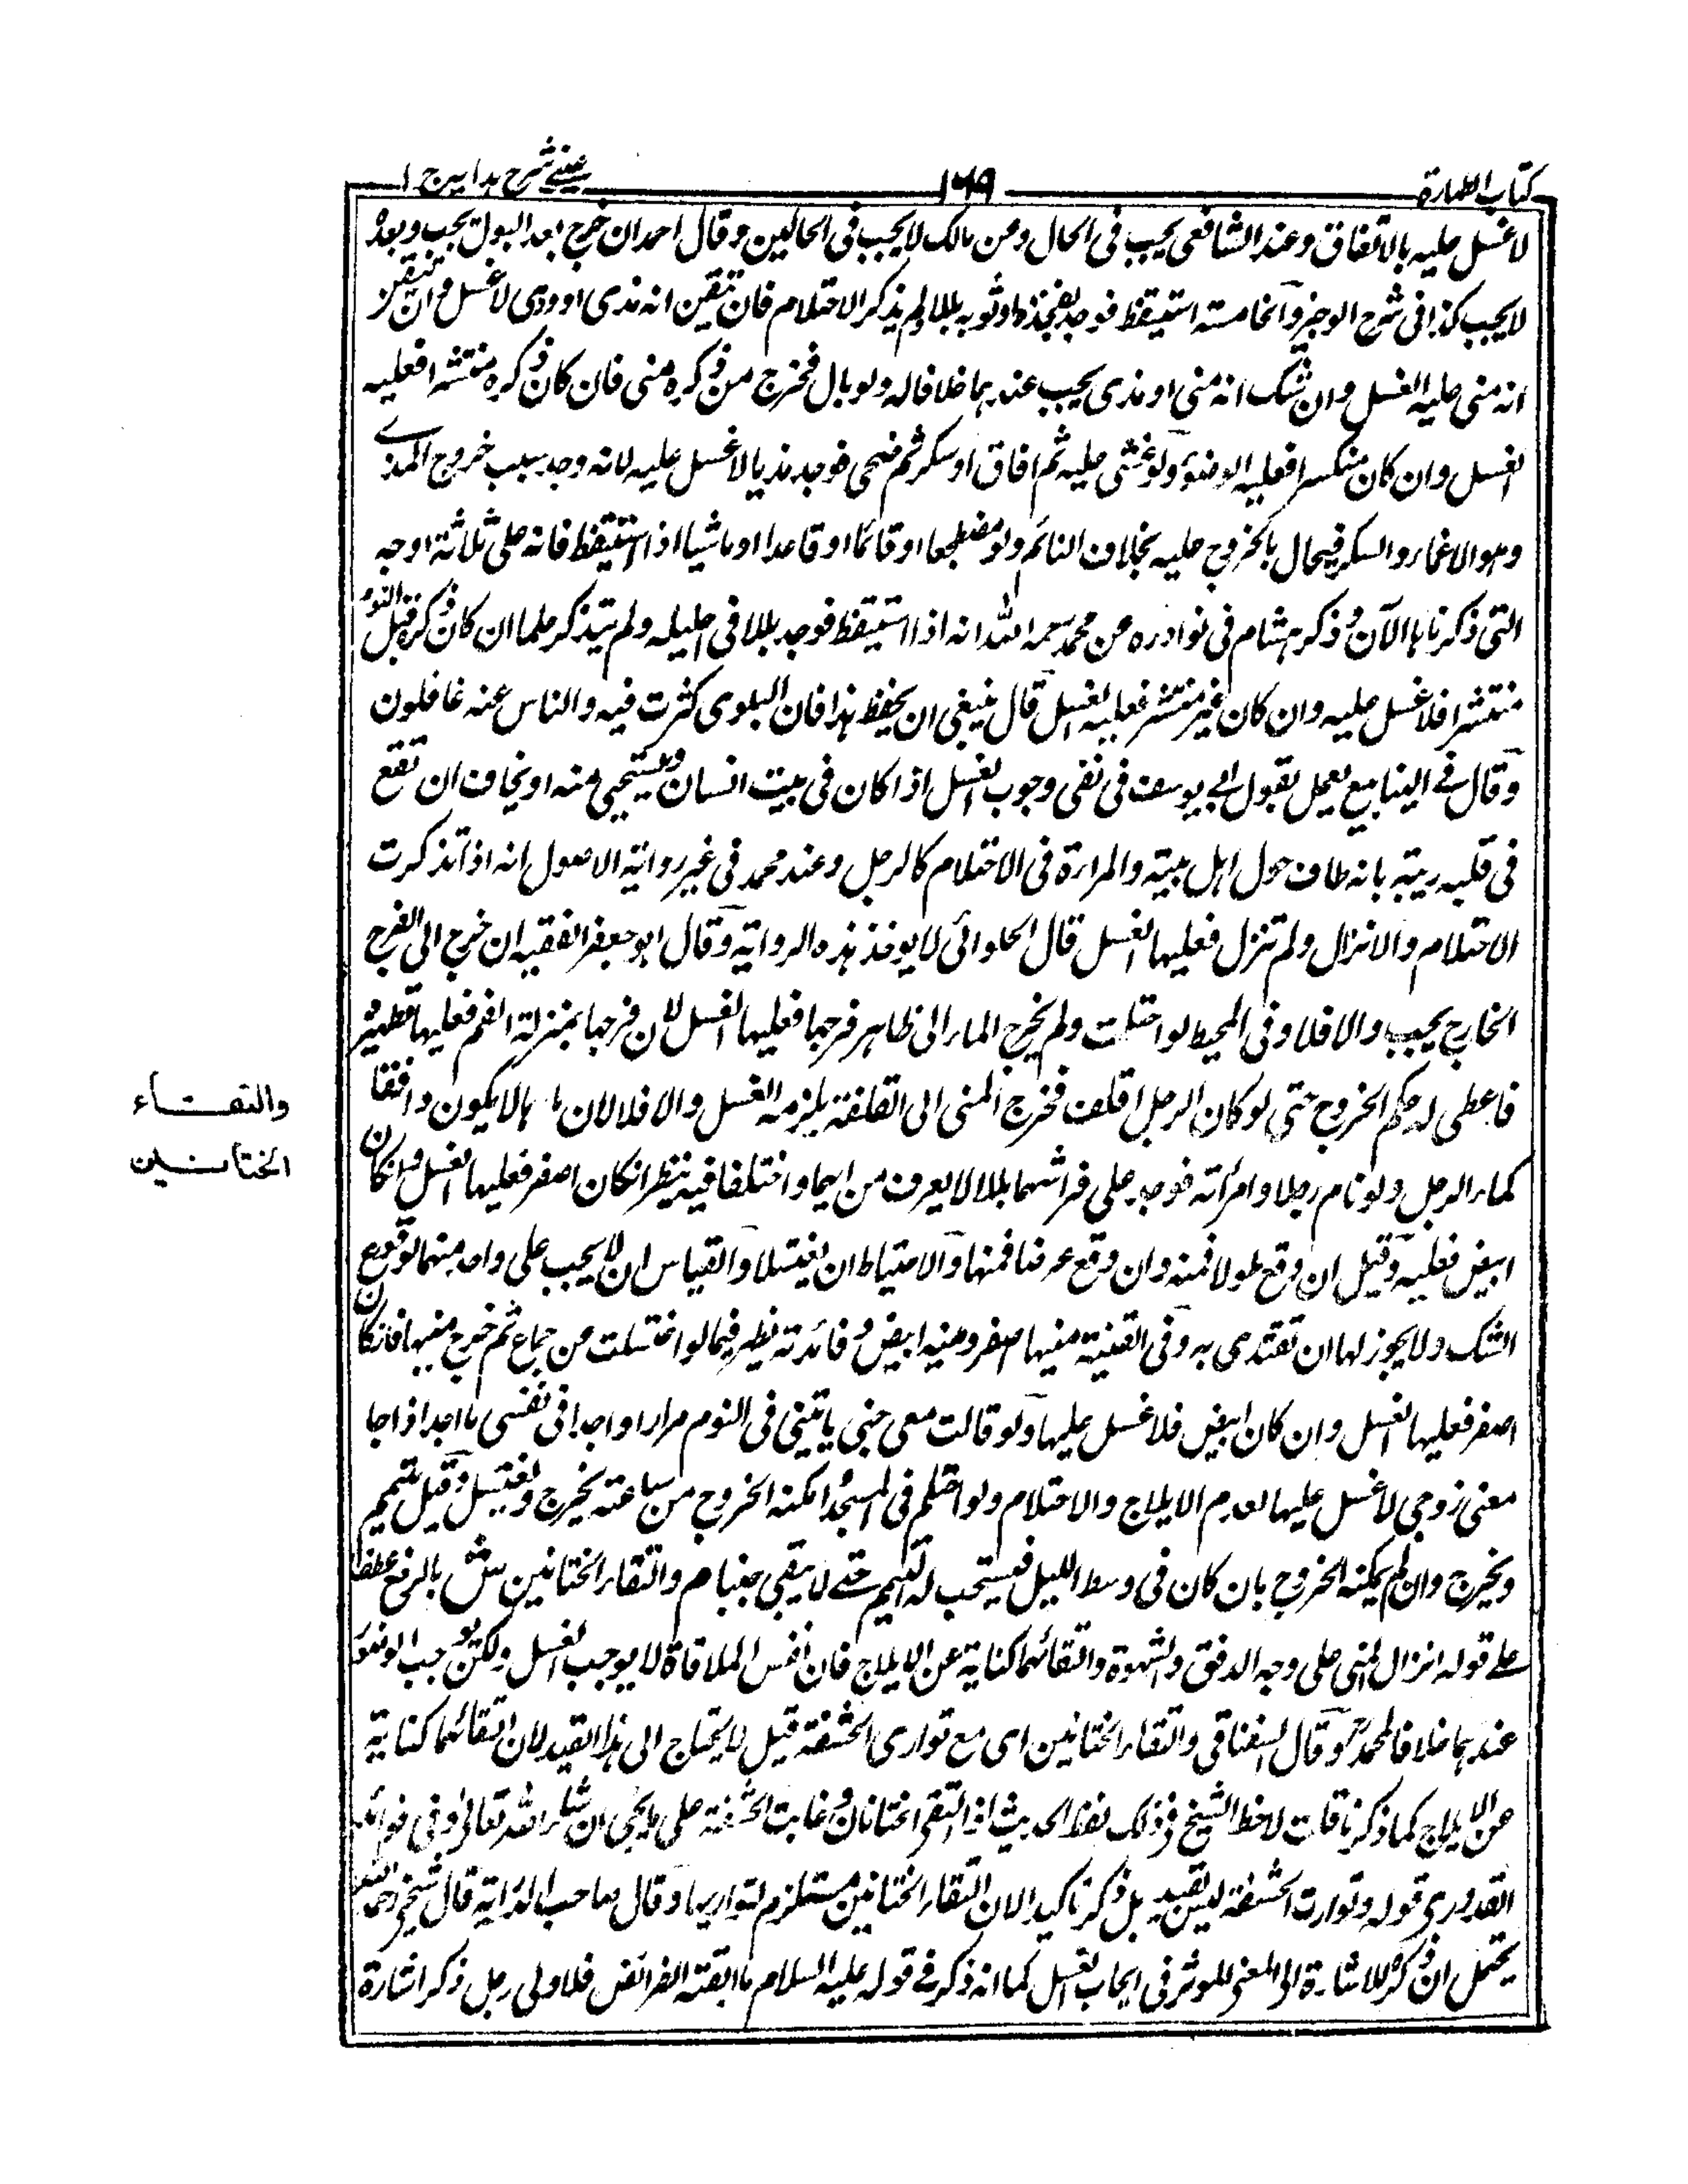 كتاب الطهارة ١٦٩ عيني شرح هدايه ج ١
لا غسل عليه بالاتفاق وعند الشافعي يجب في الحال وعن مالك لا يجب في الحالين وقال احمد ان خرج بعد البول يجب وبعده
لا يجب كذا في شرح الوجيز والخامسة استيقظ فوجد بفخذه او ثوبه بللا ولم يذكر الاحتلام فان تيقن انه مذى او ودى لا غسل وان تيقن
انه منى عليه الغسل وان شك انه منى او مذى يجب عندهما خلافا له ولو بال فخرج من ذكره منى فان كان ذكره منتشرا فعليه
الغسل وان كان منكسرا فعليه الوضوء ولو غشى عليه ثم افاق او سكر ثم صحى فوجد مذيا لا غسل عليه لانه وجد سبب خروج المذى
وهو الاغماء والسكر فيحال بالخروج عليه بخلاف النائم ولو مضطجعا او قائما او قاعدا او ماشيا اذا استيقظ فانه على ثلاثة اوجه
التى ذكرناها الآن وذكر هشام فى نوادره عن محمد رحمه الله انه اذا استيقظ فوجد بللا فى احليله ولم يتذكر حلما ان كان ذكره قبل النوم
منتشرا فلا غسل عليه وان كان غير منتشر فعليه الغسل قال ينبغى ان يحفظ هذا فان البلوى كثرت فيه والناس عنه غافلون
وقال فى الينابيع يعمل بقول ابى يوسف فى نفى وجوب الغسل اذا كان فى بيت انسان ويستحيى منه او يخاف ان تقع
فى قلبه ريبة بانه طاف حول اهل بيته والمراة فى الاحتلام كالرجل وعند محمد فى غير رواية الاصول انه اذا تذكرت
الاحتلام والانزال ولم تنزل فعليها الغسل قال الحلوائى لا يوخذ بهذه الرواية وقال ابو جعفر الفقيه ان خرج الى الفرج
الخارج يجب والا فلا وفى المحيط لو احتلمت ولم يخرج الماء الى ظاهر فرجها فعليها الغسل لان فرجها بمنزلة الفم فعليها تطهيره
فاعطى له حكم الخروج حتى لو كان الرجل اقلف فخرج المنى الى القلفة يلزمه الغسل والا فلا لان ماءها لا يكون دافقا
كماء الرجل ولو نام رجل وامرأته فوجد على فراشهما بللا لا يعرف من ايهما واختلفا فيه ينظر انكان اصفر فعليها الغسل وانكان
ابيض فعليه وقيل ان وقع طولا فمنه وان وقع عرضا فمنها والاحتياط ان يغتسلا والقياس ان لا يجب على واحد منهما لوقوع
الشك ولا يجوز لها ان تقتدى به وفى القنية منيها اصفر ومنيه ابيض وفائدته يظهر فيما لو اغتسلت من جماع ثم خرج منيها فانكان
اصفر فعليها الغسل وان كان ابيض فلا غسل عليها ولو قالت معى جنى ياتينى فى النوم مرارا واجد فى نفسى ما اجد اذا جا
معنى زوجى لا غسل عليها لعدم الايلاج والاحتلام ولو احتلم فى المسجد وامكنه الخروج من ساعته يخرج ويغتسل وقيل يتيمم
ويخرج وان لم يمكنه الخروج بان كان فى وسط الليل فيستحب له التيمم حتى لا يبقى جنبا م والتقاء الختانين ش بالرفع عطفا
على قوله انزال المنى على وجه الدفق والشهوة والتقائهما كناية عن الايلاج فان نفس الملاقاة لا يوجب الغسل ولكن يوجب الوضوء
عندهما خلافا لمحمد رح وقال السغناقى والتقاء الختانين اى مع توارى الحشفة قيل لا يحتاج الى هذا القيد لان التقائهما كناية
عن الايلاج كما ذكرنا قلت لاحظ الشيخ فى ذلك لفظ الحديث اذا التقى الختانان وغابت الحشفة على ما يجئ ان شاء الله تعالى وفى فوائد
القدورى قوله وتوارت الحشفة ليس بقيد بل ذكر تاكيدا لان التقاء الختانين مستلزم لتواريها وقال صاحب الدراية قال شيخى رحمه الله
يحتمل ان ذكره للاشارة الى المعنى الموثر فى ايجاب الغسل كما انه ذكر فى قوله عليه السلام ما ابقته الفرائض فلاولى رجل ذكر اشارة
والتقـاء
الختانـين